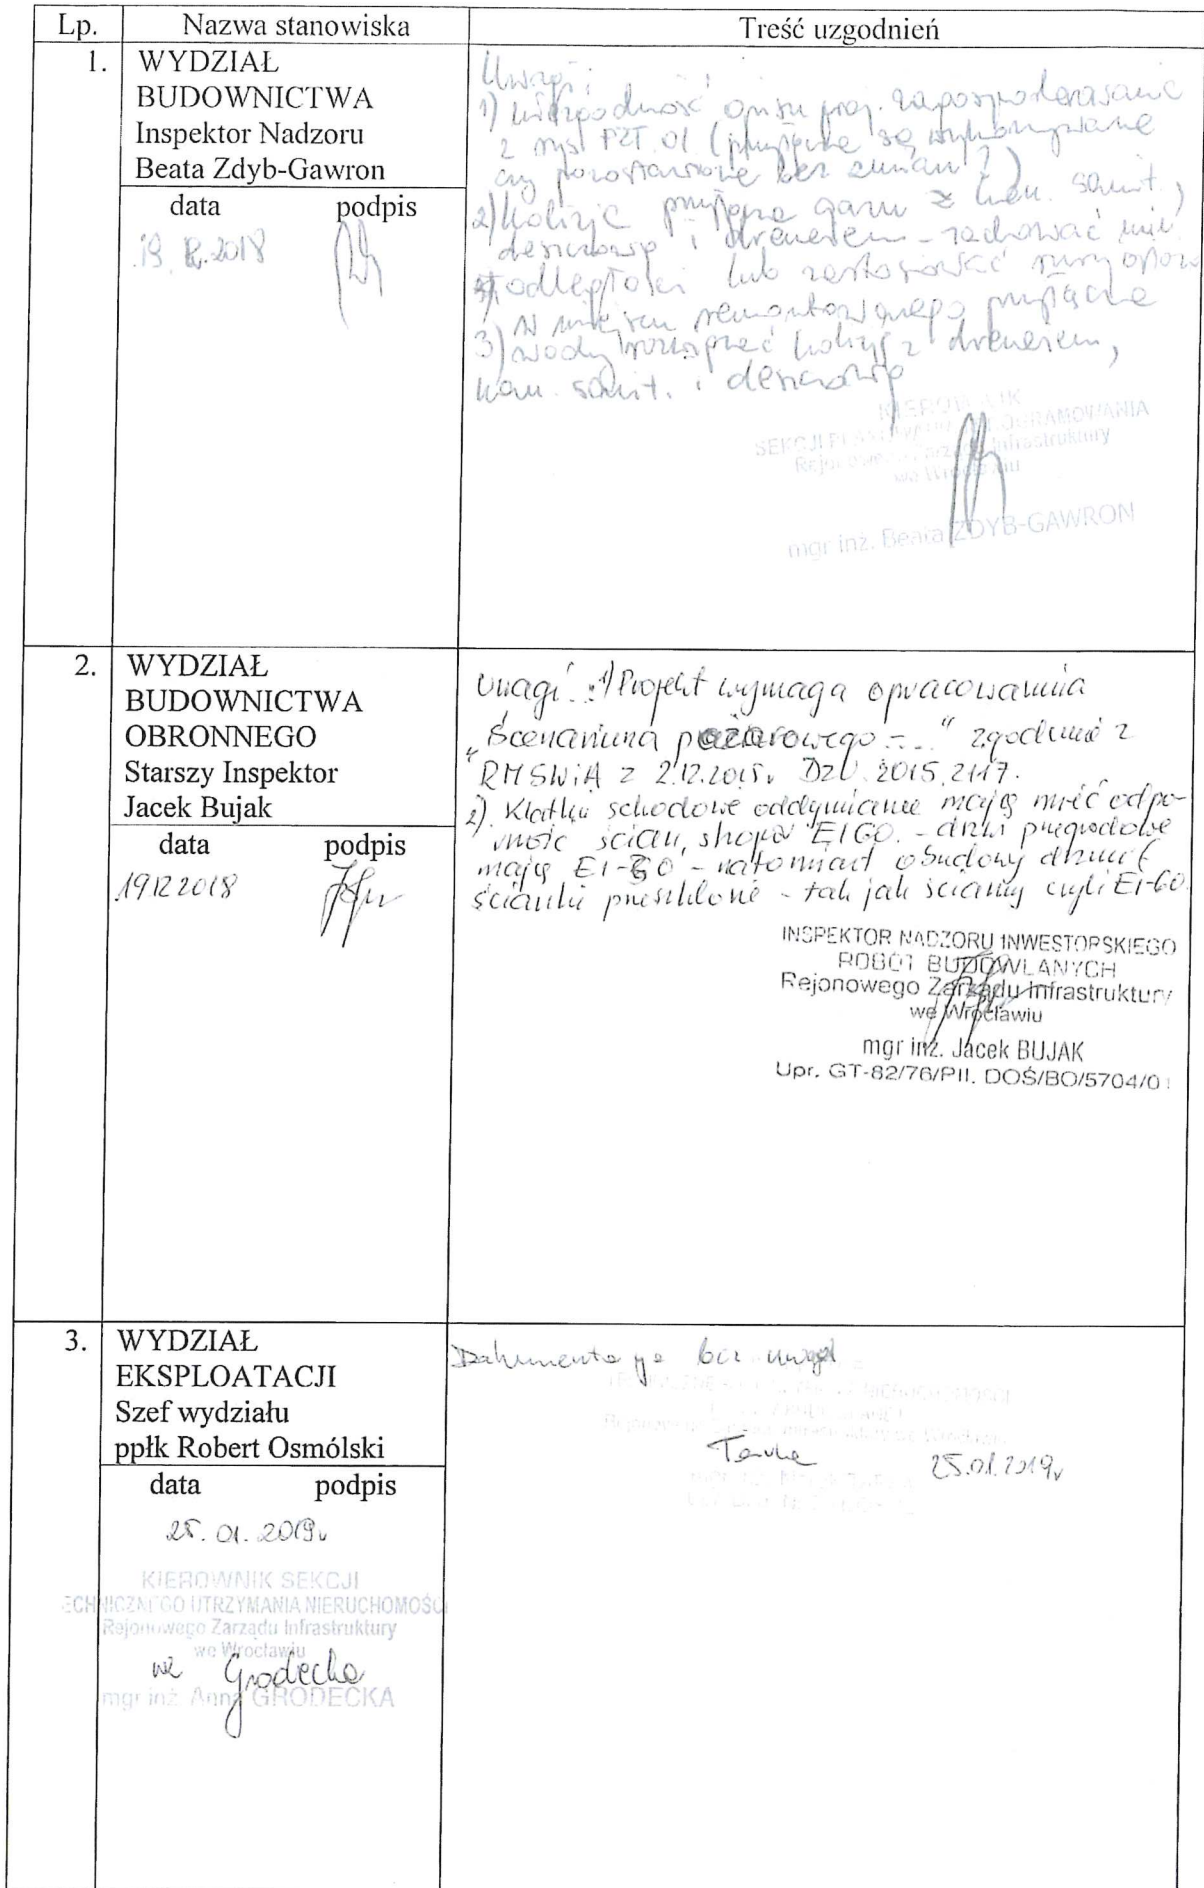 Lp. Nazwa stanowiska Treść uzgodnień
1. WYDZIAŁ
BUDOWNICTWA
Inspektor Nadzoru
Beata Zdyb-Gawron
data podpis
19.12.2018
Uwagi:
1) niezgodność opisu proj. zagospodarowania
z rys PZT.01 (przyłącza są wykonywane
czy pozostawione bez zmian?)
2) kolizje przyłącza gazu z kan. sanit.,
deszczową i drenażem - zachować
odległości lub zastosować rury
3) W miejscu remontowanego przyłącza
wody kolizję z drenażem,
kan. sanit. i deszczową
KIEROWNIK
Rejonowego Zarządu Infrastruktury
we Wrocławiu
mgr inż. Beata ZDYB-GAWRON
2. WYDZIAŁ
BUDOWNICTWA
OBRONNEGO
Starszy Inspektor
Jacek Bujak
data podpis
19.12.2018
Uwagi: 1) Projekt wymaga opracowania
"Scenariusza pożarowego -..." zgodnie z
RMSWiA z 2.12.2015r. DzU.2015.2117.
2). Klatki schodowe oddymiane mają mieć odpo-
ność ścian, stropów EI60. - drzwi
mają EI-30 - natomiast obudowy drzwi (
ścianki przeszklone - tak jak ściany czyli EI-60.
INSPEKTOR NADZORU INWESTORSKIEGO
ROBÓT BUDOWLANYCH
Rejonowego Zarządu Infrastruktury
we Wrocławiu
mgr inż. Jacek BUJAK
Upr. GT-82/76/PII. DOŚ/BO/5704/01
3. WYDZIAŁ
EKSPLOATACJI
Szef wydziału
ppłk Robert Osmólski
data podpis
25.01.2019r
KIEROWNIK SEKCJI
ECHNICZNEGO UTRZYMANIA NIERUCHOMOŚCI
Rejonowego Zarządu Infrastruktury
we Wrocławiu
wz Grodecka
mgr inż. Anna GRODECKA
Dokumentacja bez uwag
25.01.2019r